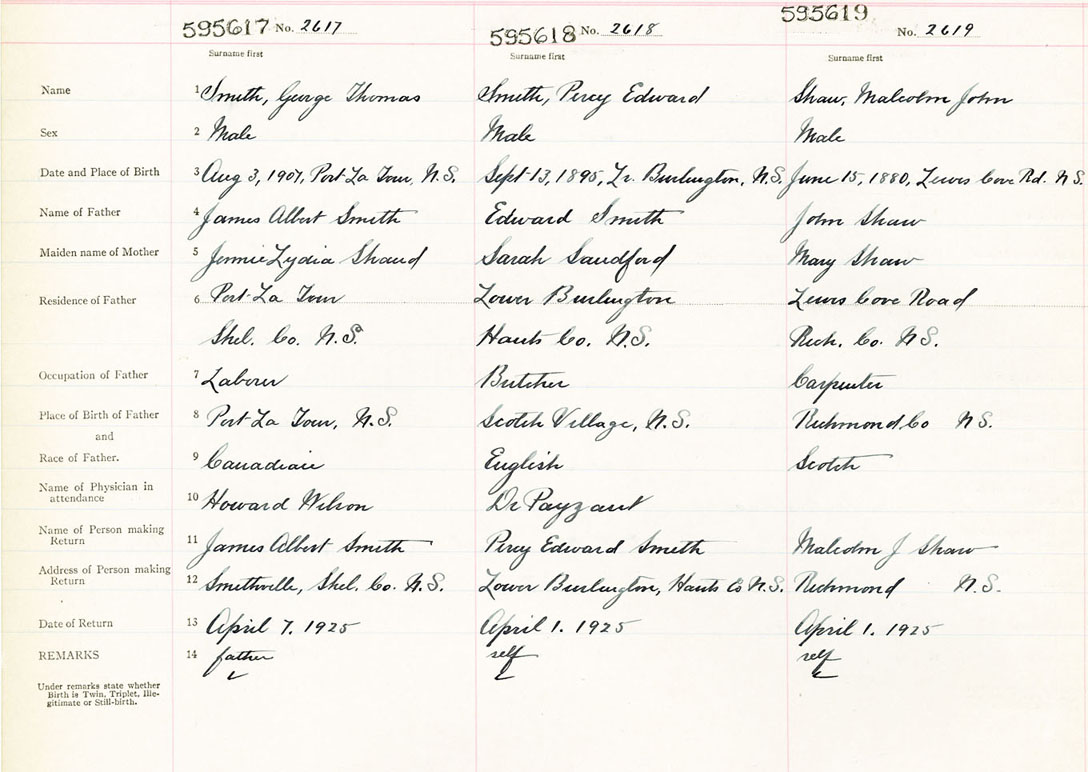 595617 No. 2617 595618 No. 2618 595619 No. 2619
Surname first Surname first Surname first
Name 1 Smith, George Thomas Smith, Percy Edward Shaw, Malcolm John
Sex 2 Male Male Male
Date and Place of Birth 3 Aug 3, 1907, Port La Tour, N.S. Sept 13, 1895, Lr. Burlington, N.S. June 15, 1880, Lewis Cove Rd. N.S
Name of Father 4 James Albert Smith Edward Smith John Shaw
Maiden name of Mother 5 Jennie Lydia Shand Sarah Sandford Mary Shaw
Residence of Father 6 Port La Tour Lower Burlington Lewis Cove Road
Shel. Co. N.S. Hants Co. N.S. Rich. Co. N.S.
Occupation of Father 7 Laborer Butcher Carpenter
Place of Birth of Father 8 Port La Tour, N.S. Scotch Village, N.S. Richmond Co N S.
and
Race of Father. 9 Canadian English Scotch
Name of Physician in
attendance 10 Howard Wilson Dr Payzant
Name of Person making
Return 11 James Albert Smith Percy Edward Smith Malcolm J Shaw
Address of Person making
Return 12 Smithville, Shel. Co. N.S. Lower Burlington, Hants Co N.S. Richmond N.S.
Date of Return 13 April 7. 1925 April 1. 1925 April 1. 1925
REMARKS 14 father self self
Under remarks state whether
Birth is Twin, Triplet, Ille-
gitimate or Still-birth.